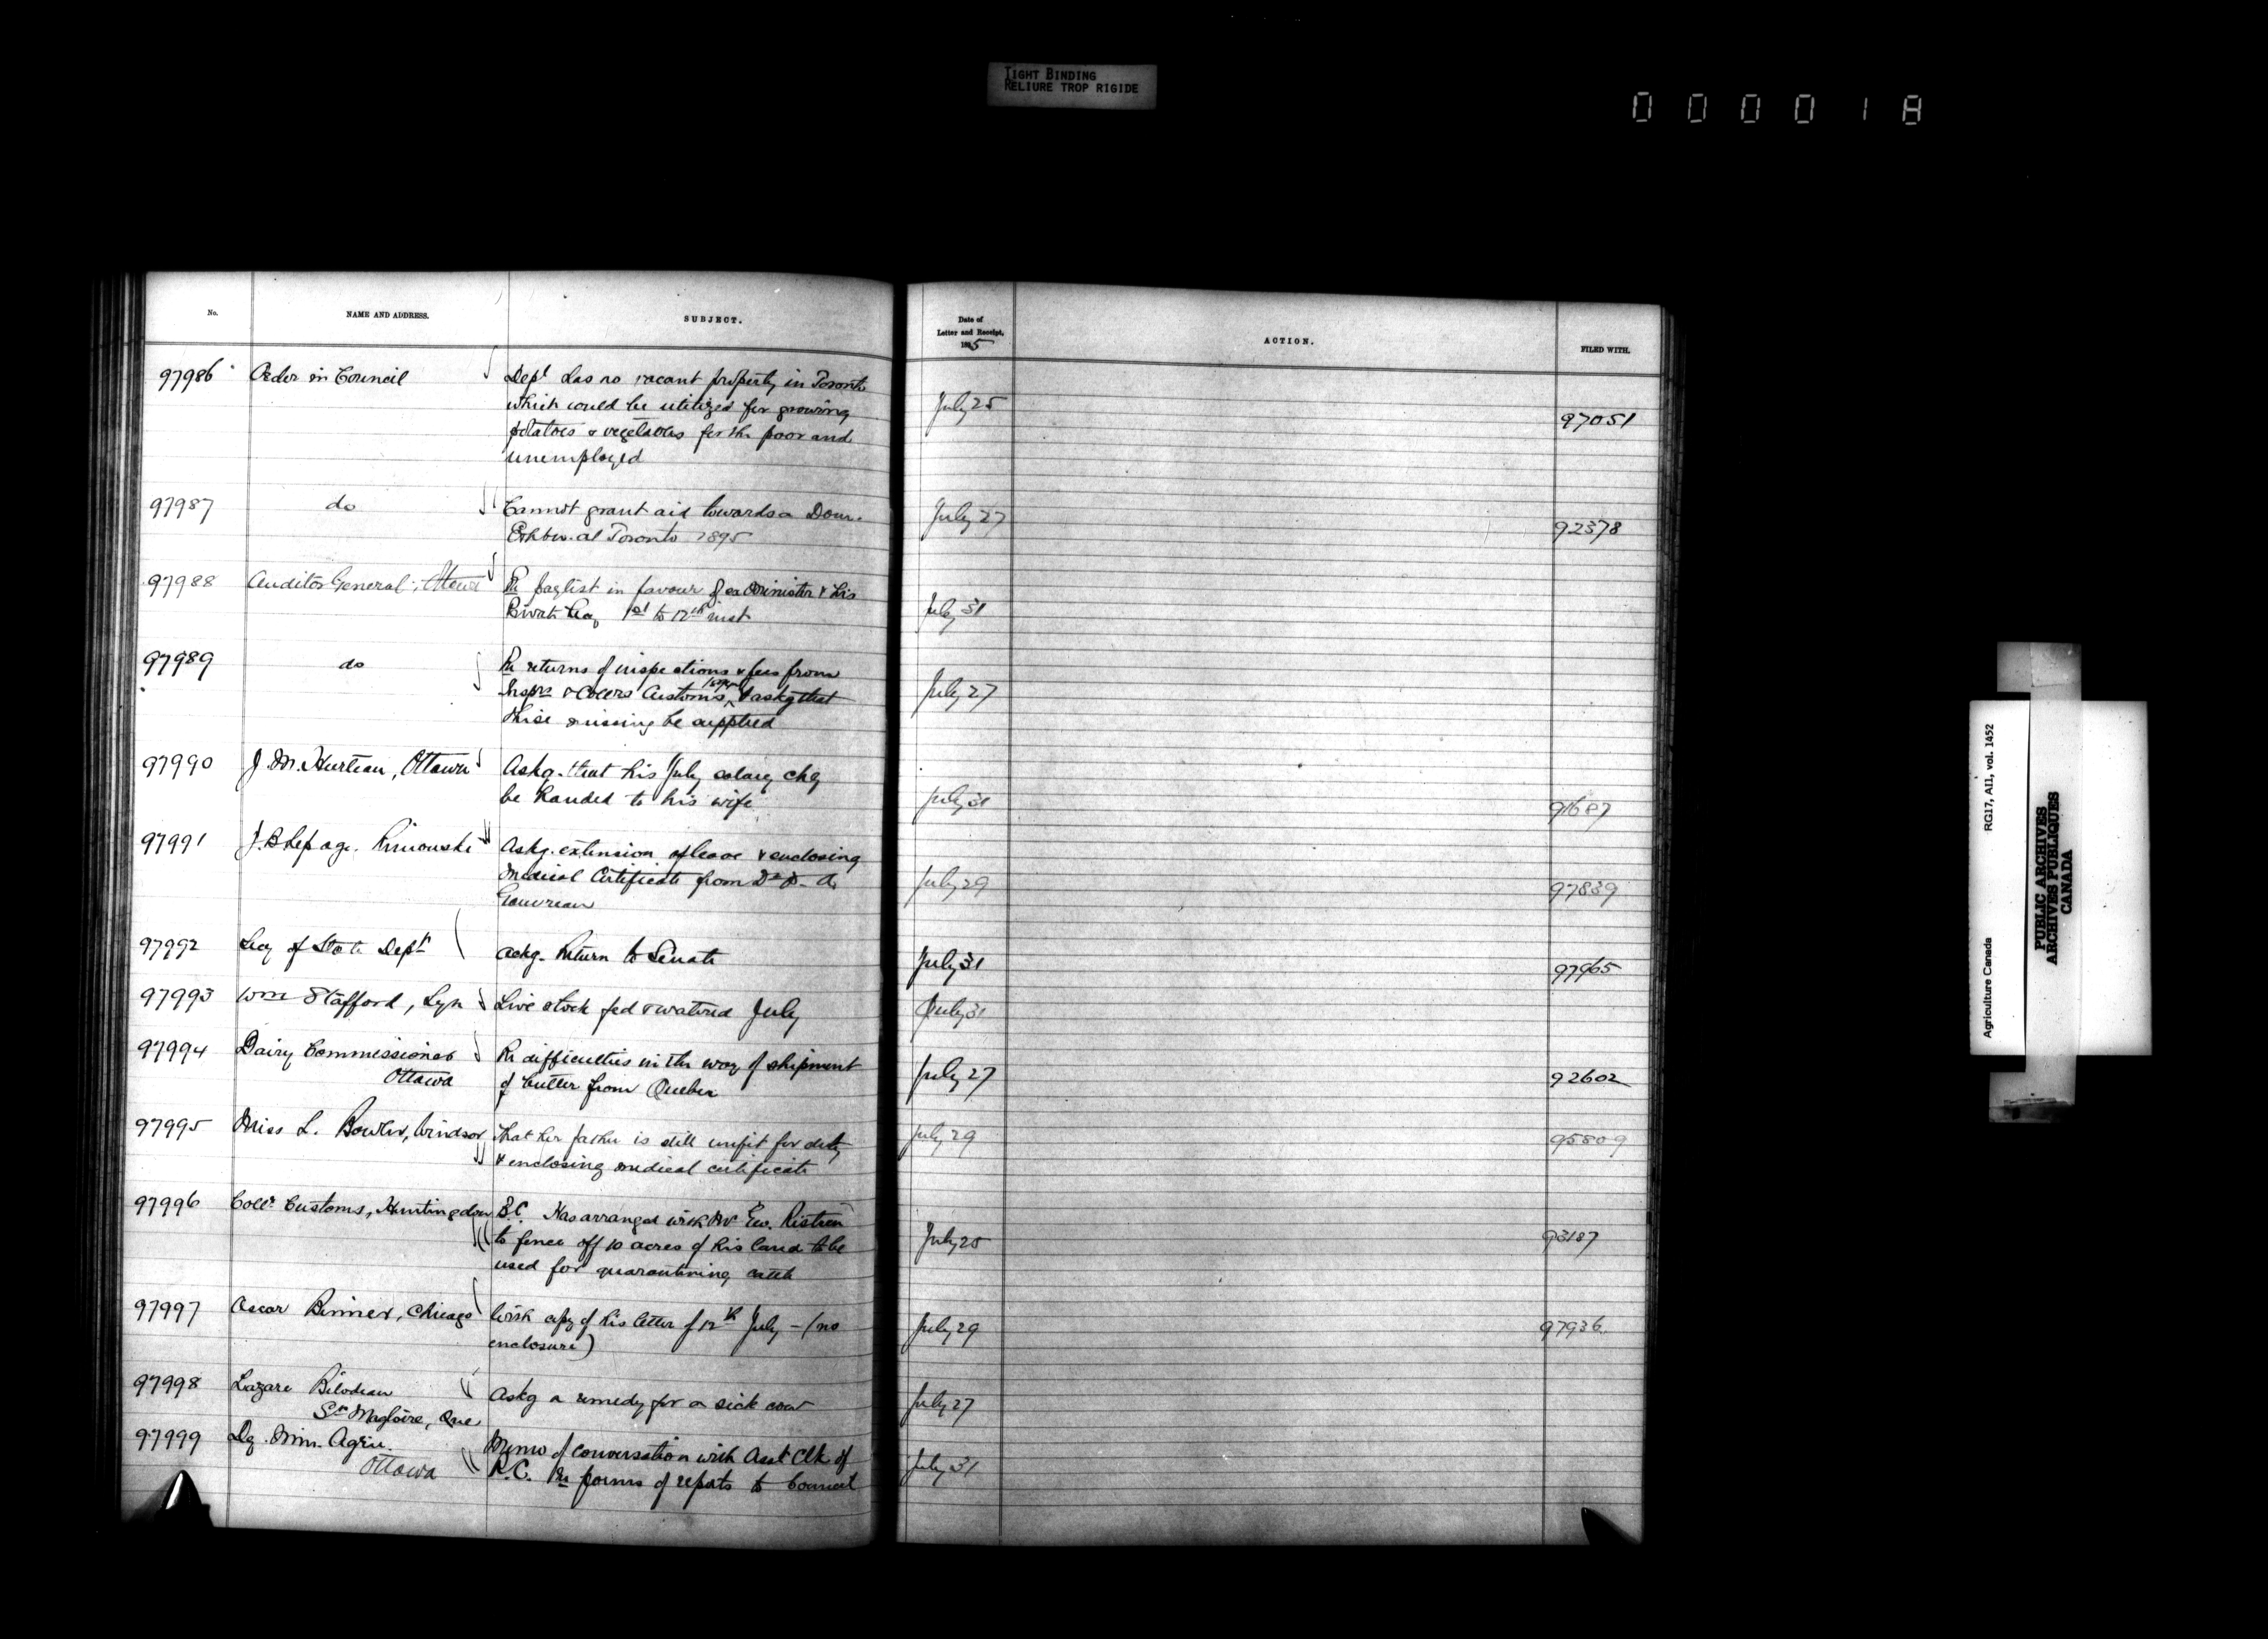 TIGHT BINDING
RELIURE TROP RIGIDE
000018
No.
NAME AND ADDRESS.
SUBJECT.
Date of
Letter and Receipt,
1895
ACTION.
FILED WITH.
97986 Order in Council Dept has no vacant property in Toronto
which could be utilized for growing July 25 97051
potatoes & vegetables for the poor and
unemployed
97987 do Cannot grant aid towards a Dom. July 27
Exhbn. at Toronto 1895 92378
97988 Auditor General, Ottawa Re paylist in favour of ex Minister & his
Private Secy 1st to 12th inst July 31
97989 do Re returns of inspections & fees from
Insprs & Collrs Customs, & askg that July 27
those missing be supplied
97990 J. M. Hurteau, Ottawa Askg. that his July salary chq
be handed to his wife July 31 91687
97991 J. B. Lepage. Rimouski Askg. extension of leave & enclosing
Medical Certificate from Dr A. July 29 97839
Gauvreau
97992 Secy of State Dept askg. Return to Senate July 31 97965
97993 Wm Stafford, Lyn Live stock fed & watered July July 31
97994 Dairy Commissioner Re difficulties in the way of shipment
Ottawa of butter from Quebec July 27 92602
97995 Miss L. Bowler, Windsor That her father is still unfit for duty July 29 95809
& enclosing medical certificate
97996 Collr Customs, Huntingdon B.C. Has arranged with Mr
to fence off 10 acres of his land to be July 25 93187
used for quarantining cattle
97997 Oscar Binner, Chicago With copy of his letter of 12th July - (no July 29 97936
enclosure)
97998 Lazare Bilodeau Askg a remedy for a sick cow July 27
St Magloire, Que
97999 Dy. Min. Agric. Memo of conversation with Asst Clk of
Ottawa P.C. Re forms of reports to Council July 31
Agriculture Canada RG17, AI1, vol. 1452
PUBLIC ARCHIVES
ARCHIVES PUBLIQUES
CANADA